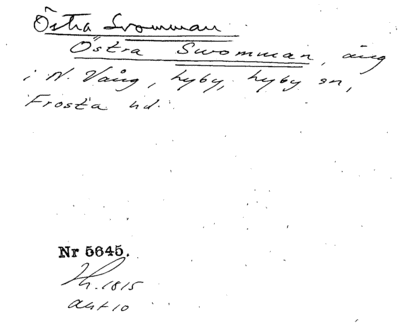 Östra Svomman
Östra Swomman, äng
i N. Vång, Hyby, Hyby sn,
Frosta hd.
Nr 5645.
Th. 1815
akt 10